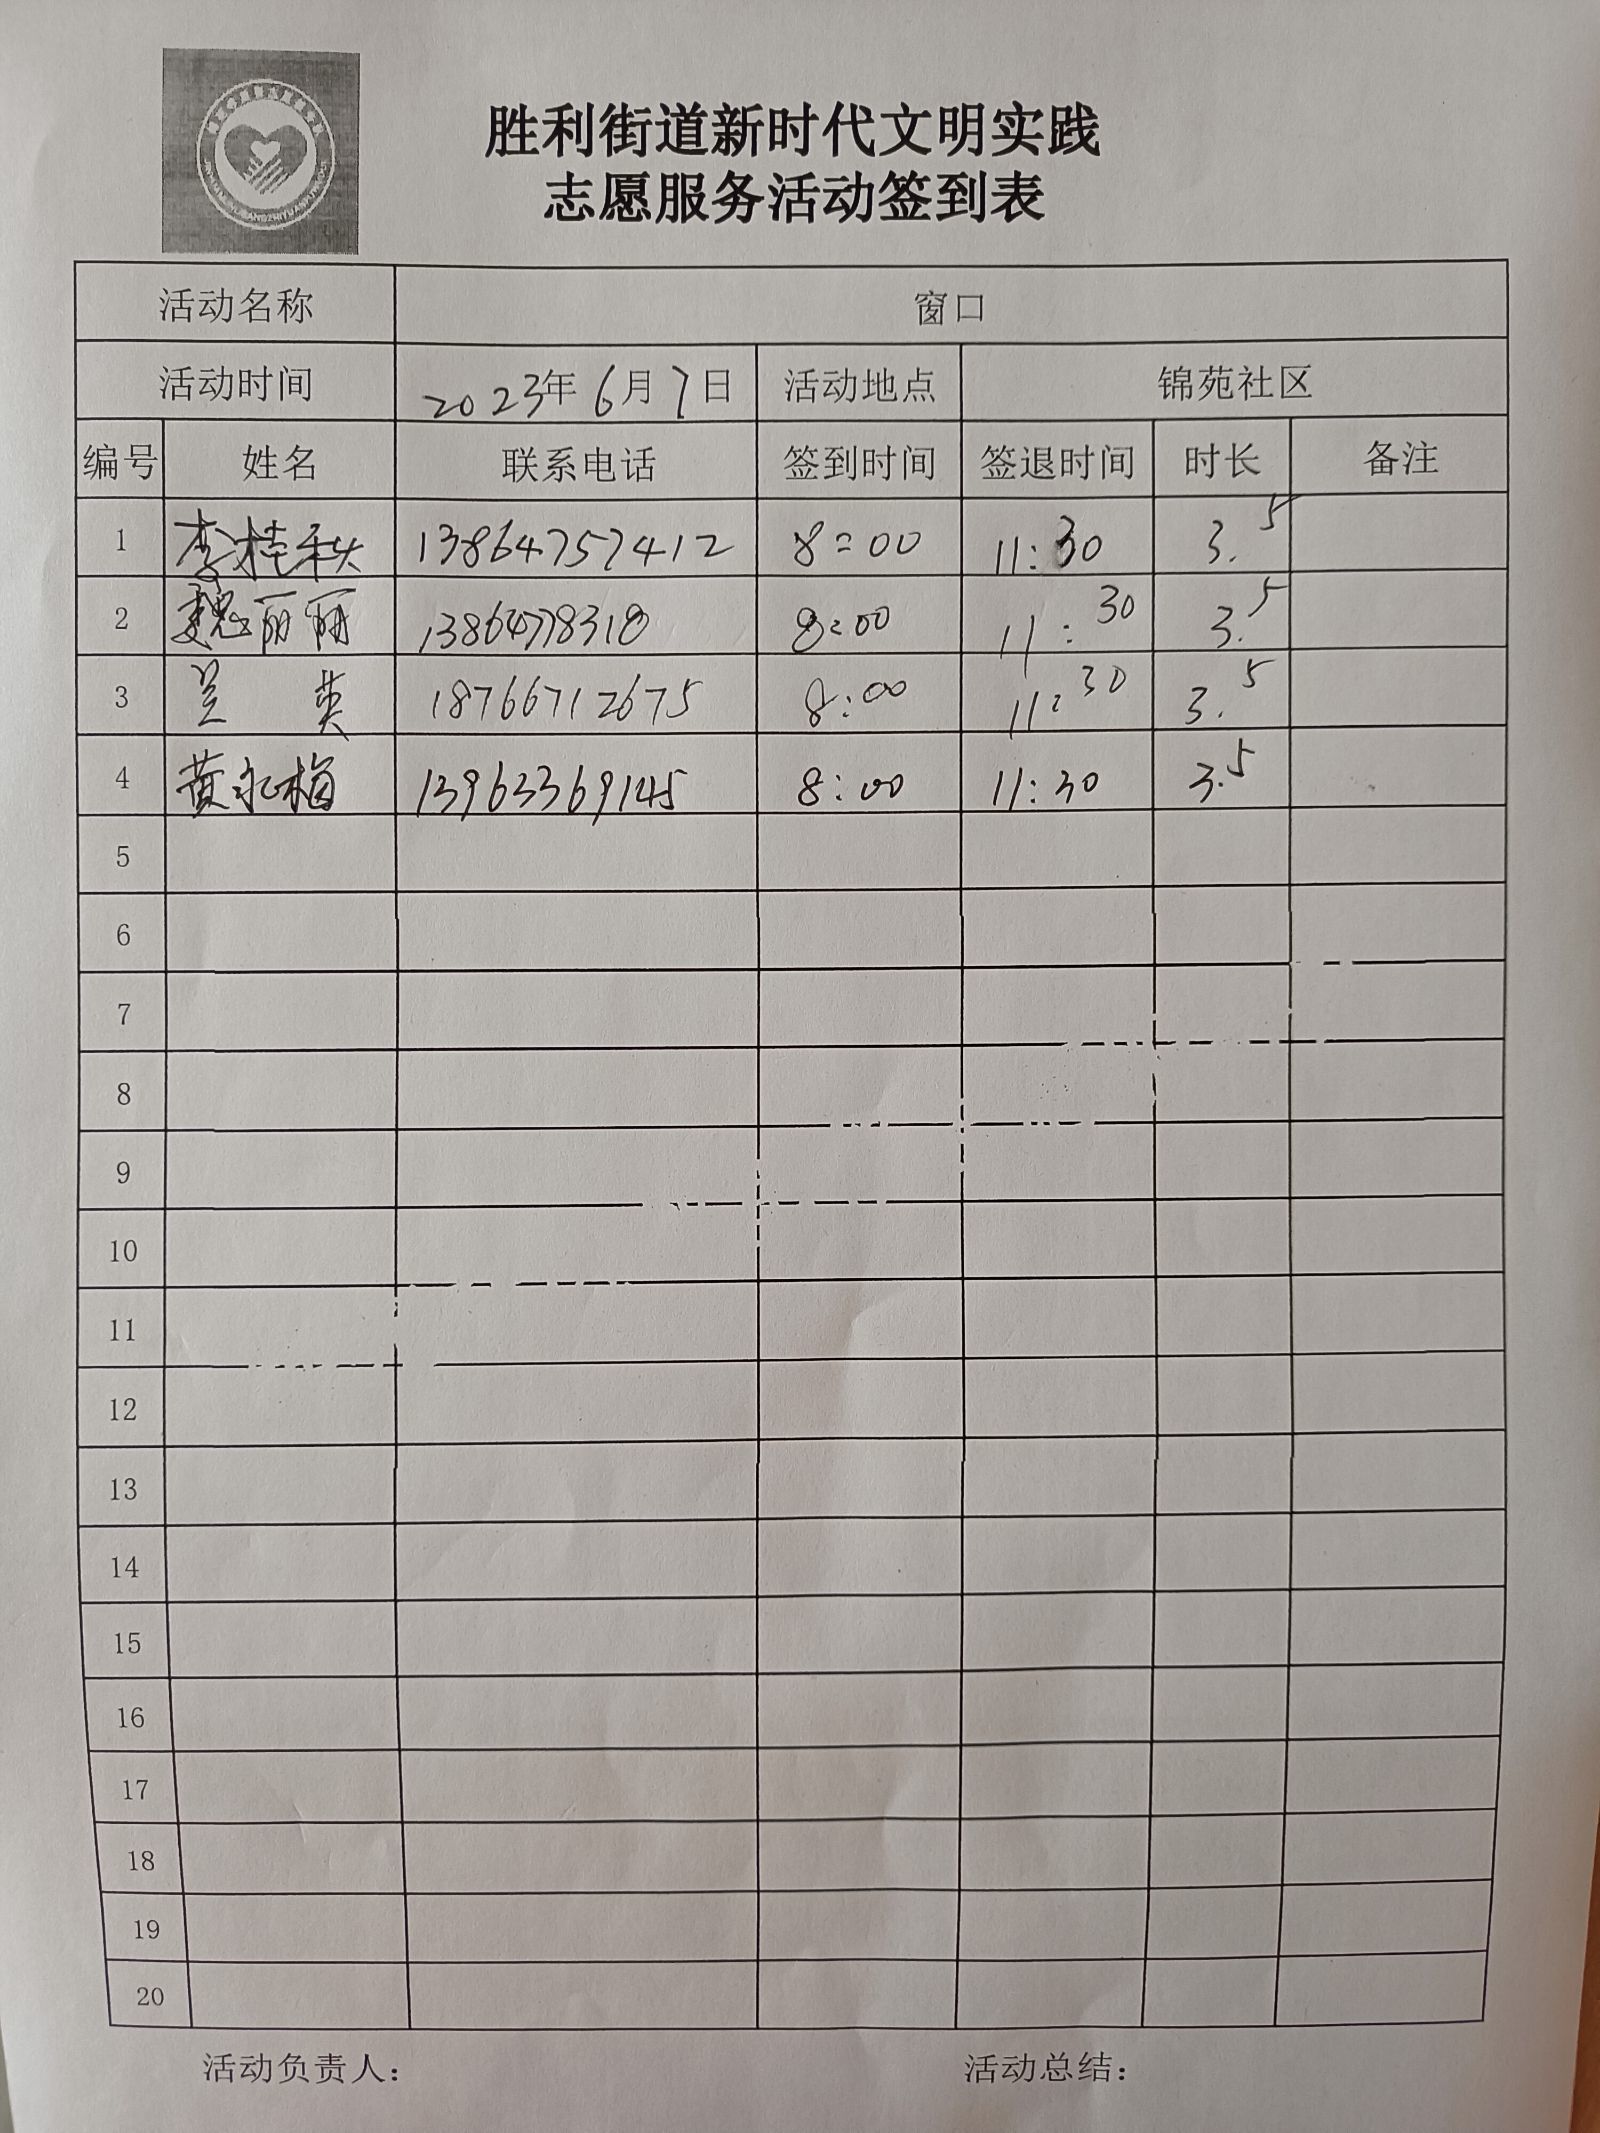 胜利街道新时代文明实践
志愿服务活动签到表
活动名称 窗口
活动时间 2023年6月7日 活动地点 锦苑社区
编号 姓名 联系电话 签到时间 签退时间 时长 备注
1 李桂秋 13864757412 8:00 11:30 3.5
2 魏丽丽 13864778318 8:00 11:30 3.5
3 兰英 18766712675 8:00 11:30 3.5
4 黄永梅 13963369145 8:00 11:30 3.5
5
6
7
8
9
10
11
12
13
14
15
16
17
18
19
20
活动负责人： 活动总结：